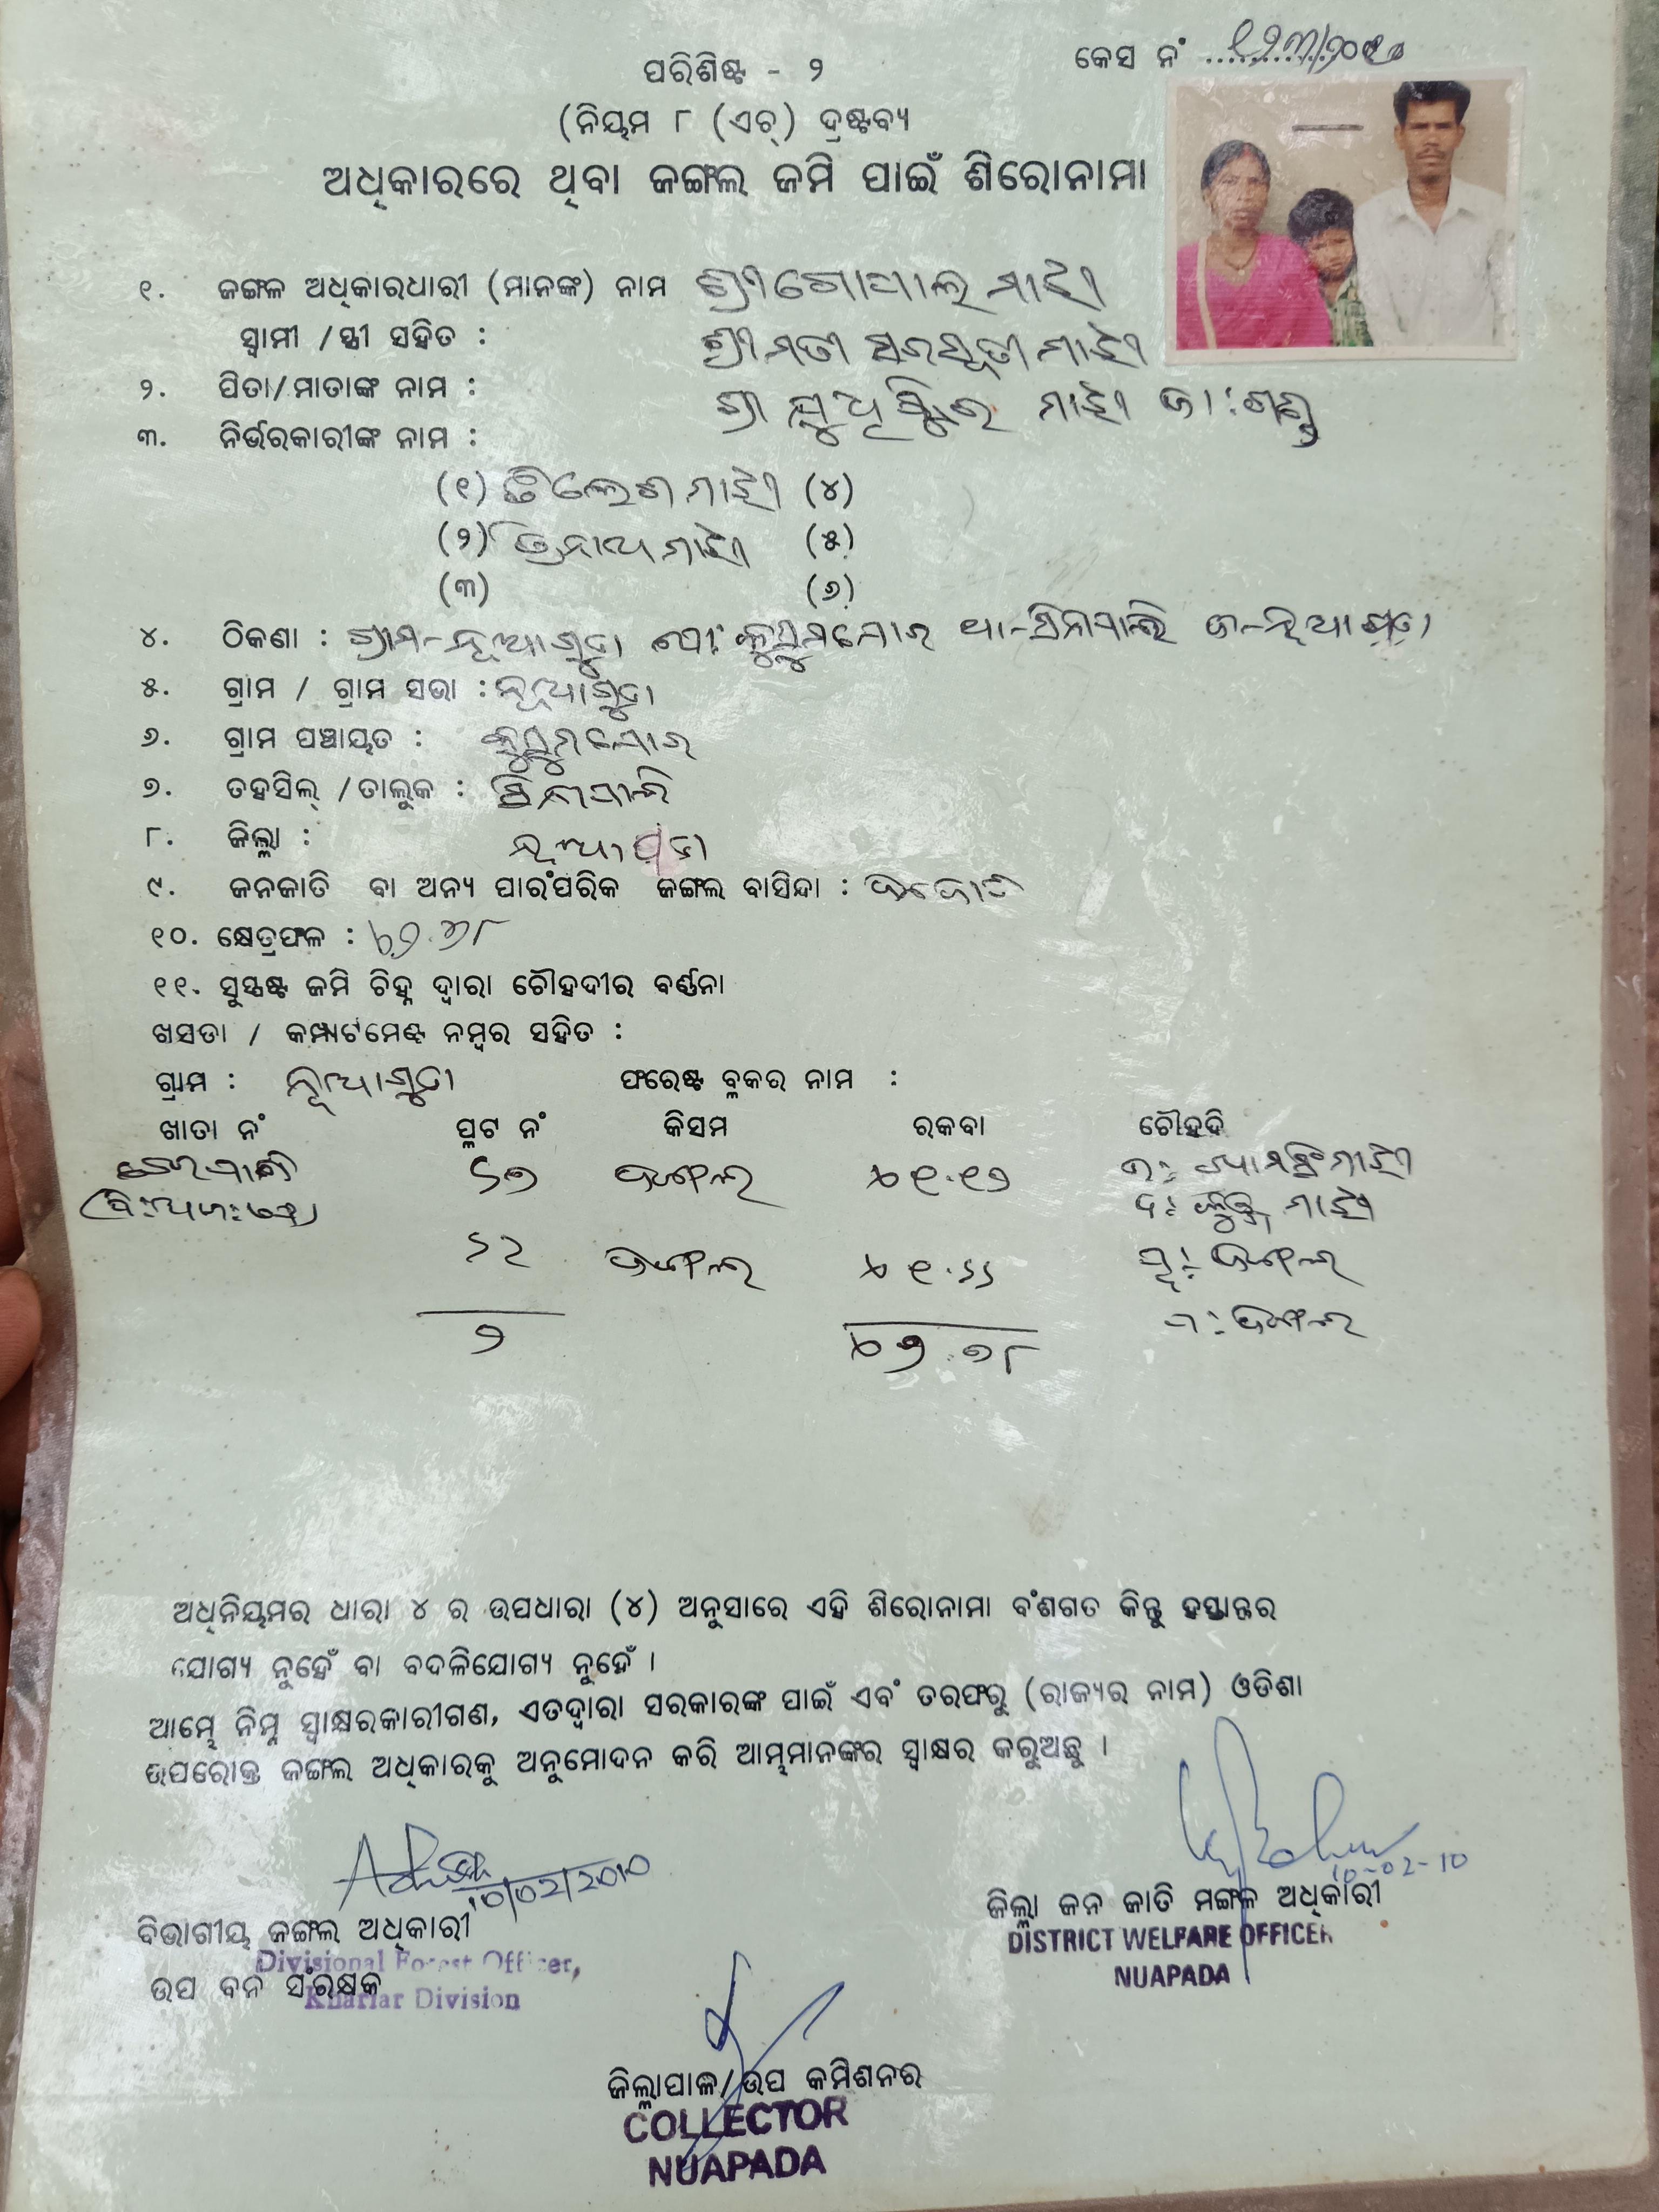 ପରିଶିଷ୍ଟ - ୨
କେସ ନଂ
(ନିୟମ ୮ (ଏଚ୍) ଦ୍ରଷ୍ଟବ୍ୟ
ଅଧିକାରରେ ଥିବା ଜଙ୍ଗଲ ଜମି ପାଇଁ ଶିରୋନାମା
୧. ଜଙ୍ଗଳ ଅଧିକାରଧାରୀ (ମାନଙ୍କ) ନାମ ଶ୍ରୀ ଗୋପାଲ ମାଝୀ
ସ୍ୱାମୀ /ସ୍ତ୍ରୀ ସହିତ : ଶ୍ରୀମତୀ ସରସ୍ୱତୀ ମାଝୀ
୨. ପିତା/ମାତାଙ୍କ ନାମ : ଶ୍ରୀ ଯୁଧିଷ୍ଠିର ମାଝୀ ଜା:
୩. ନିର୍ଭରକାରୀଙ୍କ ନାମ :
(୧) ମାଝୀ (୪)
(୨) ତ୍ରିନାଥ ମାଝୀ (୫)
(୩) (୬)
୪. ଠିକଣା : ଗ୍ରାମ-ନୂଆଗୁଡା ପୋ: କୁସୁମଯୋର ଥା-ସିନାପାଲି ଜି-ନୂଆପଡା
୫. ଗ୍ରାମ / ଗ୍ରାମ ସଭା : ନୂଆଗୁଡା
୬. ଗ୍ରାମ ପଞ୍ଚାୟତ : କୁସୁମଯୋର
୭. ତହସିଲ୍ /ତାଲୁକ : ସିନାପାଲି
୮. ଜିଲ୍ଲା : ନୂଆପଡା
୯. ଜନଜାତି ବା ଅନ୍ୟ ପାରଂପରିକ ଜଙ୍ଗଲ ବାସିନ୍ଦା : ଜନଜାତି
୧୦. କ୍ଷେତ୍ରଫଳ :
୧୧. ସୁସ୍ପଷ୍ଟ ଜମି ଚିହ୍ନ ଦ୍ୱାରା ଚୌହଦୀର ବର୍ଣ୍ଣନା
ଖସଡା / କମ୍ପାର୍ଟମେଣ୍ଟ ନମ୍ବର ସହିତ :
ଗ୍ରାମ : ନୂଆଗୁଡା ଫରେଷ୍ଟ ବ୍ଲକର ନାମ :
ଖାତା ନଂ ପ୍ଲଟ ନଂ କିସମ ରକବା ଚୌହଦି
ଜଙ୍ଗଲ ଉ: ମାଝୀ
ଦ: ମାଝୀ
ଜଙ୍ଗଲ ପୂ: ଜଙ୍ଗଲ
ପ: ଜଙ୍ଗଲ
୨
ଅଧିନିୟମର ଧାରା ୪ ର ଉପଧାରା (୪) ଅନୁସାରେ ଏହି ଶିରୋନାମା ବଂଶଗତ କିନ୍ତୁ ହସ୍ତାନ୍ତର
ଯୋଗ୍ୟ ନୁହେଁ ବା ବଦଳିଯୋଗ୍ୟ ନୁହେଁ ।
ଆମ୍ଭେ ନିମ୍ନ ସ୍ୱାକ୍ଷରକାରୀଗଣ, ଏତଦ୍ୱାରା ସରକାରଙ୍କ ପାଇଁ ଏବଂ ତରଫରୁ (ରାଜ୍ୟର ନାମ) ଓଡିଶା
ଉପରୋକ୍ତ ଜଙ୍ଗଲ ଅଧିକାରକୁ ଅନୁମୋଦନ କରି ଆମ୍ଭମାନଙ୍କର ସ୍ୱାକ୍ଷର କରୁଅଛୁ ।
10/02/2010
10-02-10
ବିଭାଗୀୟ ଜଙ୍ଗଲ ଅଧିକାରୀ
Divisional Forest Officer,
ଉପ ବନ ସଂରକ୍ଷକ
Khariar Division
ଜିଲ୍ଲା ଜନ ଜାତି ମଙ୍ଗଳ ଅଧିକାରୀ
DISTRICT WELFARE OFFICER
NUAPADA
ଜିଲ୍ଲାପାଳ/ଉପ କମିଶନର
COLLECTOR
NUAPADA